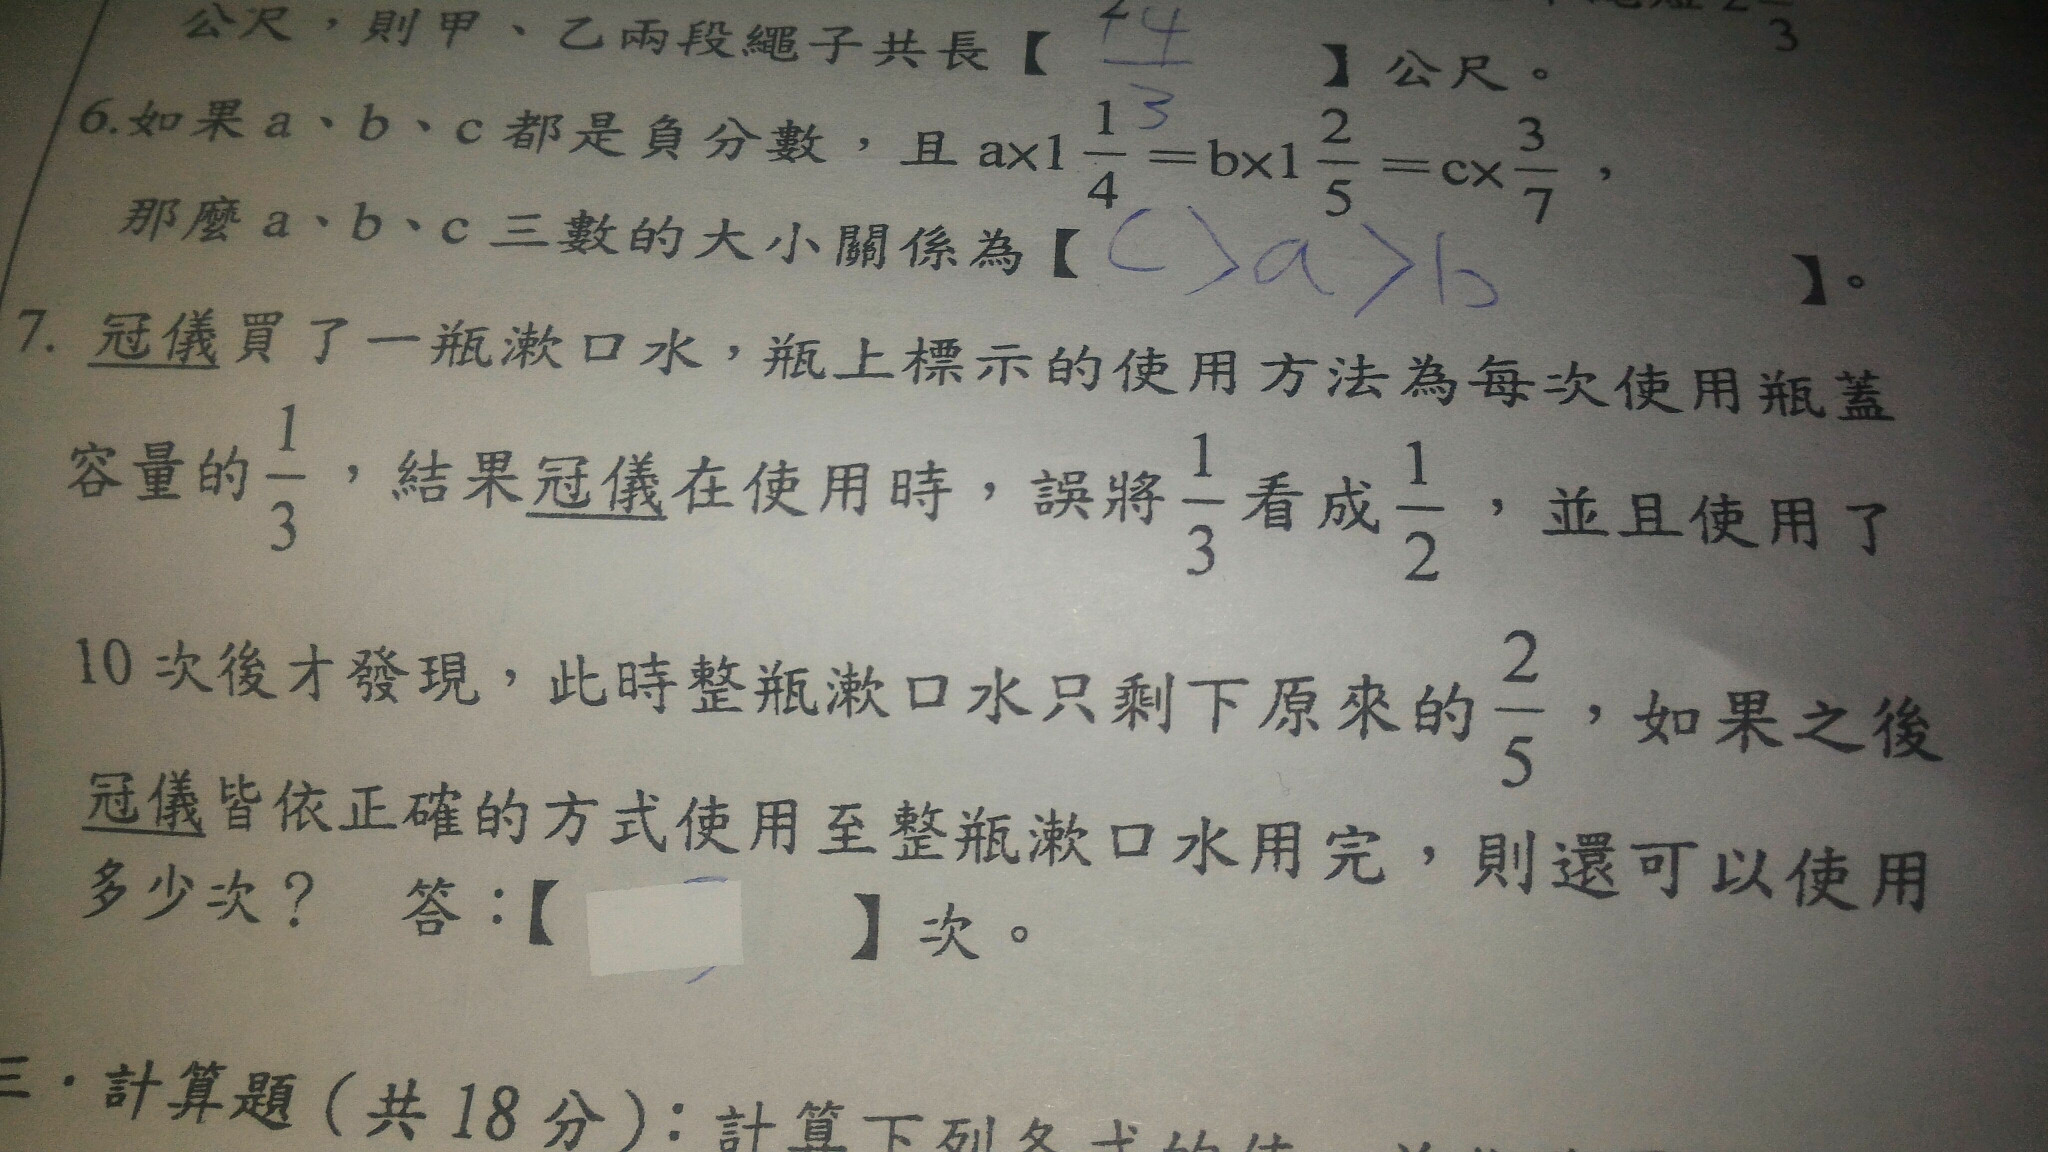 公尺，則甲、乙兩段繩子共長【 14/3 】公尺。
6.如果 a、b、c 都是負分數，且 a×1 1/4 ＝b×1 2/5 ＝c× 3/7 ，
那麼 a、b、c 三數的大小關係為【 c>a>b 】。
7. 冠儀買了一瓶漱口水，瓶上標示的使用方法為每次使用瓶蓋
容量的 1/3 ，結果冠儀在使用時，誤將 1/3 看成 1/2 ，並且使用了
10 次後才發現，此時整瓶漱口水只剩下原來的 2/5 ，如果之後
冠儀皆依正確的方式使用至整瓶漱口水用完，則還可以使用
多少次？ 答：【 】次。
三．計算題（共 18 分）：計算下列各式的值